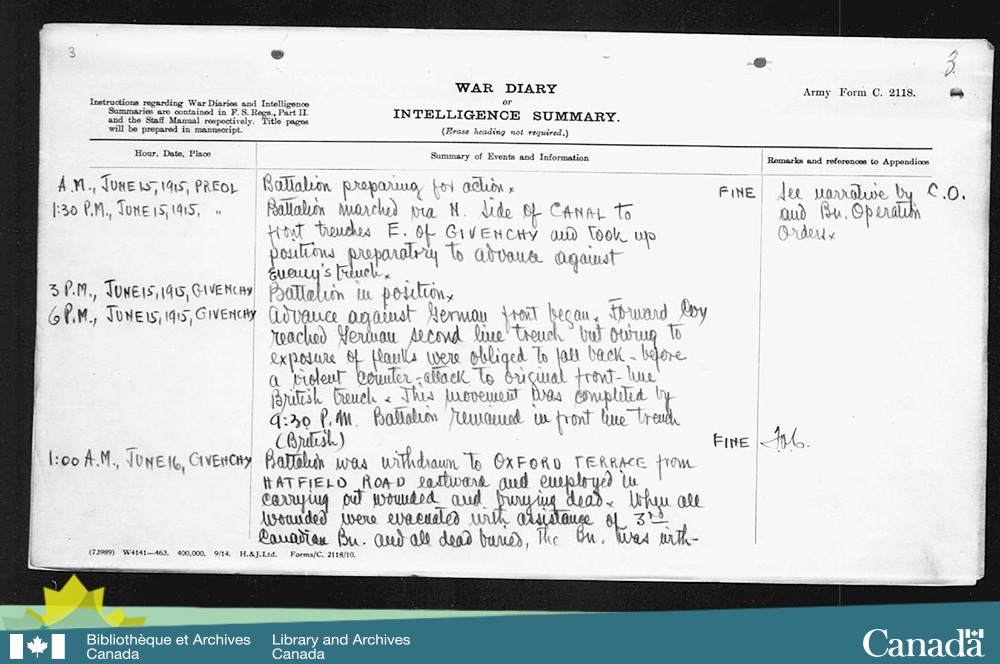 3
3.
WAR DIARY
or
INTELLIGENCE SUMMARY.
(Erase heading not required.)
Army Form C. 2118.
Instructions regarding War Diaries and Intelligence
Summaries are contained in F. S. Regs., Part II.
and the Staff Manual respectively. Title pages
will be prepared in manuscript.
Hour, Date, Place
Summary of Events and Information
Remarks and references to Appendices
A.M., JUNE 15, 1915, PREOL Battalion preparing for action. FINE See narrative by C.O.
1:30 P.M., JUNE 15, 1915, " Battalion marched via N. Side of CANAL to and Bn. Operation
front trenches E. of GIVENCHY and took up Orders.
positions preparatory to advance against
Enemy's trench.
3 P.M., JUNE 15, 1915, GIVENCHY Battalion in position.
6 P.M., JUNE 15, 1915, GIVENCHY Advance against German front began. Forward Coy
reached German second line trench but owing to
exposure of flanks were obliged to fall back - before
a violent counter-attack to original front-line
British trench. This movement was completed by
9:30 P.M. Battalion remained in front line trench
(British) FINE
1:00 A.M., JUNE 16, GIVENCHY Battalion was withdrawn to OXFORD TERRACE from
HATFIELD ROAD eastward and employed in
carrying out wounded and burying dead. When all
wounded were evacuated with assistance of 3rd
Canadian Bn. and all dead buried, the Bn. was with-
(73989) W4141—463. 400,000. 9/14. H.&J.Ltd. Forms/C. 2118/10.
Bibliothèque et Archives
Canada
Library and Archives
Canada
Canada